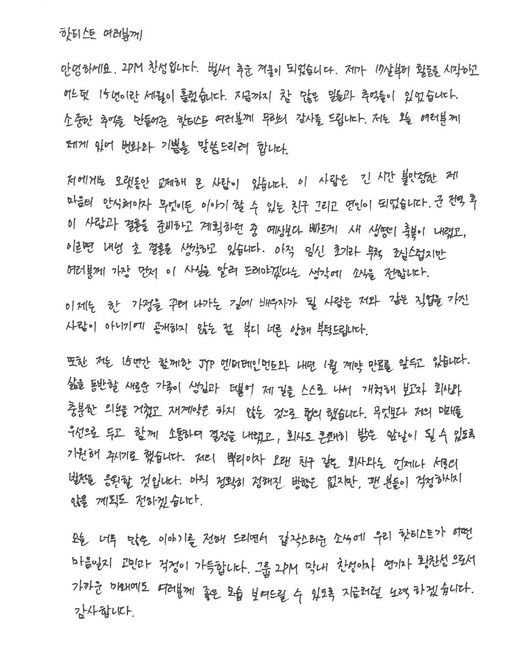 핫티스트 여러분께
안녕하세요. 2PM 찬성입니다. 벌써 추운 겨울이 되었습니다. 제가 17살부터 활동을 시작하고
어느덧 15년이란 세월이 흘렀습니다. 지금까지 참 많은 일들과 추억들이 있었습니다.
소중한 추억을 만들어준 핫티스트 여러분께 무한히 감사를 드립니다. 저는 오늘 여러분께
제게 있어 변화와 기쁨을 말씀드리려 합니다.
저에게는 오랫동안 교제해 온 사람이 있습니다. 이 사람은 긴 시간 불안정한 제
마음의 안식처이자 무엇이든 이야기 할 수 있는 친구 그리고 연인이 되었습니다. 군 전역 후
이 사람과 결혼을 준비하고 계획하던 중 예상보다 빠르게 새 생명의 축복이 내렸고,
이르면 내년 초 결혼을 생각하고 있습니다. 아직 임신 초기라 무척 조심스럽지만
여러분께 가장 먼저 이 사실을 알려 드려야겠다는 생각에 소식을 전합니다.
이제는 한 가정을 꾸려 나가는 길에 배우자가 될 사람은 저와 같은 직업을 가진
사람이 아니기에 공개하지 않는 점 부디 너른 양해 부탁드립니다.
또한 저는 15년간 함께한 JYP 엔터테인먼트와 내년 1월 계약 만료를 앞두고 있습니다.
삶을 동반할 새로운 가족이 생김과 더불어 제 길을 스스로 나서 개척해 보고자 회사와
충분한 의논을 거쳤고 재계약은 하지 않는 것으로 협의 했습니다. 무엇보다 저의 미래를
우선으로 두고 함께 소통하며 결정을 내렸고, 회사도 흔쾌히 밝은 앞날이 될 수 있도록
기원해 주시기로 했습니다. 저의 뿌리이자 오랜 친구 같은 회사와는 언제나 서로의
발전을 응원할 것입니다. 아직 정확히 정해진 방향은 없지만, 팬 분들이 걱정하시지
않을 계획도 전하겠습니다.
오늘 너무 많은 이야기를 전해 드리면서 갑작스러운 소식에 우리 핫티스트가 어떤
마음일지 고민과 걱정이 가득합니다. 그룹 2PM 막내 찬성이자 연기자 황찬성으로서
가까운 미래에도 여러분께 좋은 모습 보여드릴 수 있도록 지금처럼 노력 하겠습니다.
감사합니다.